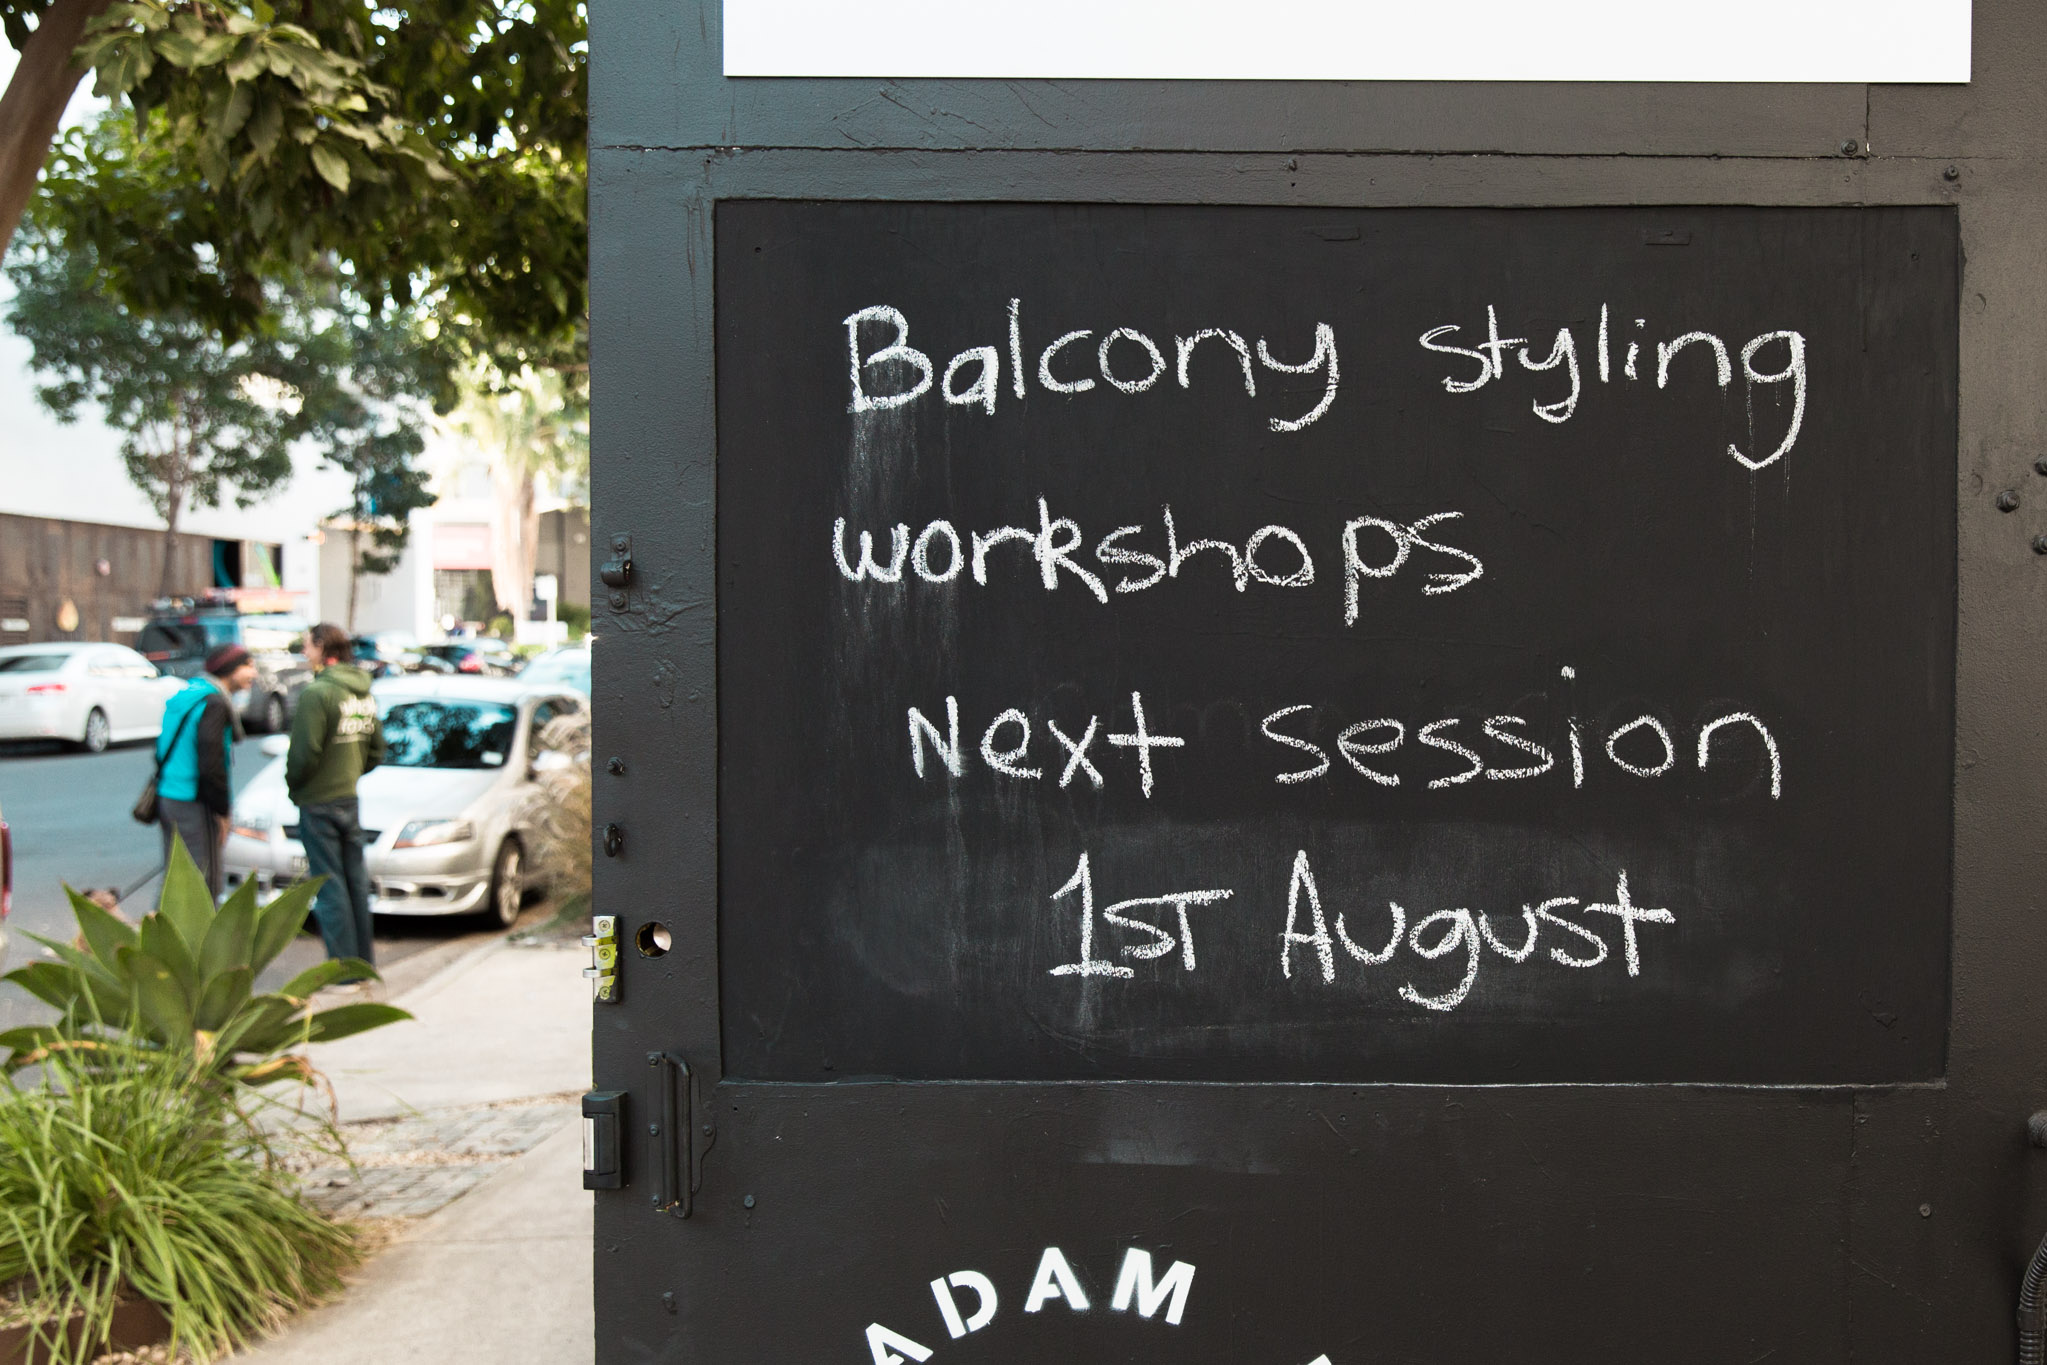 Balcony styling
workshops
Next session
1st August
ADAM